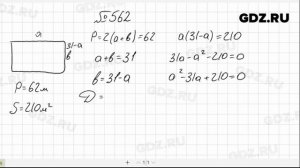 GDZ.RU
№562
a
31-a
b
P=62м
S=210м²
P=2(a+b)=62
a+b=31
b=31-a
D=
a(31-a)=210
31a-a²-210=0
a²-31a+210=0
GDZ.RU
1/1